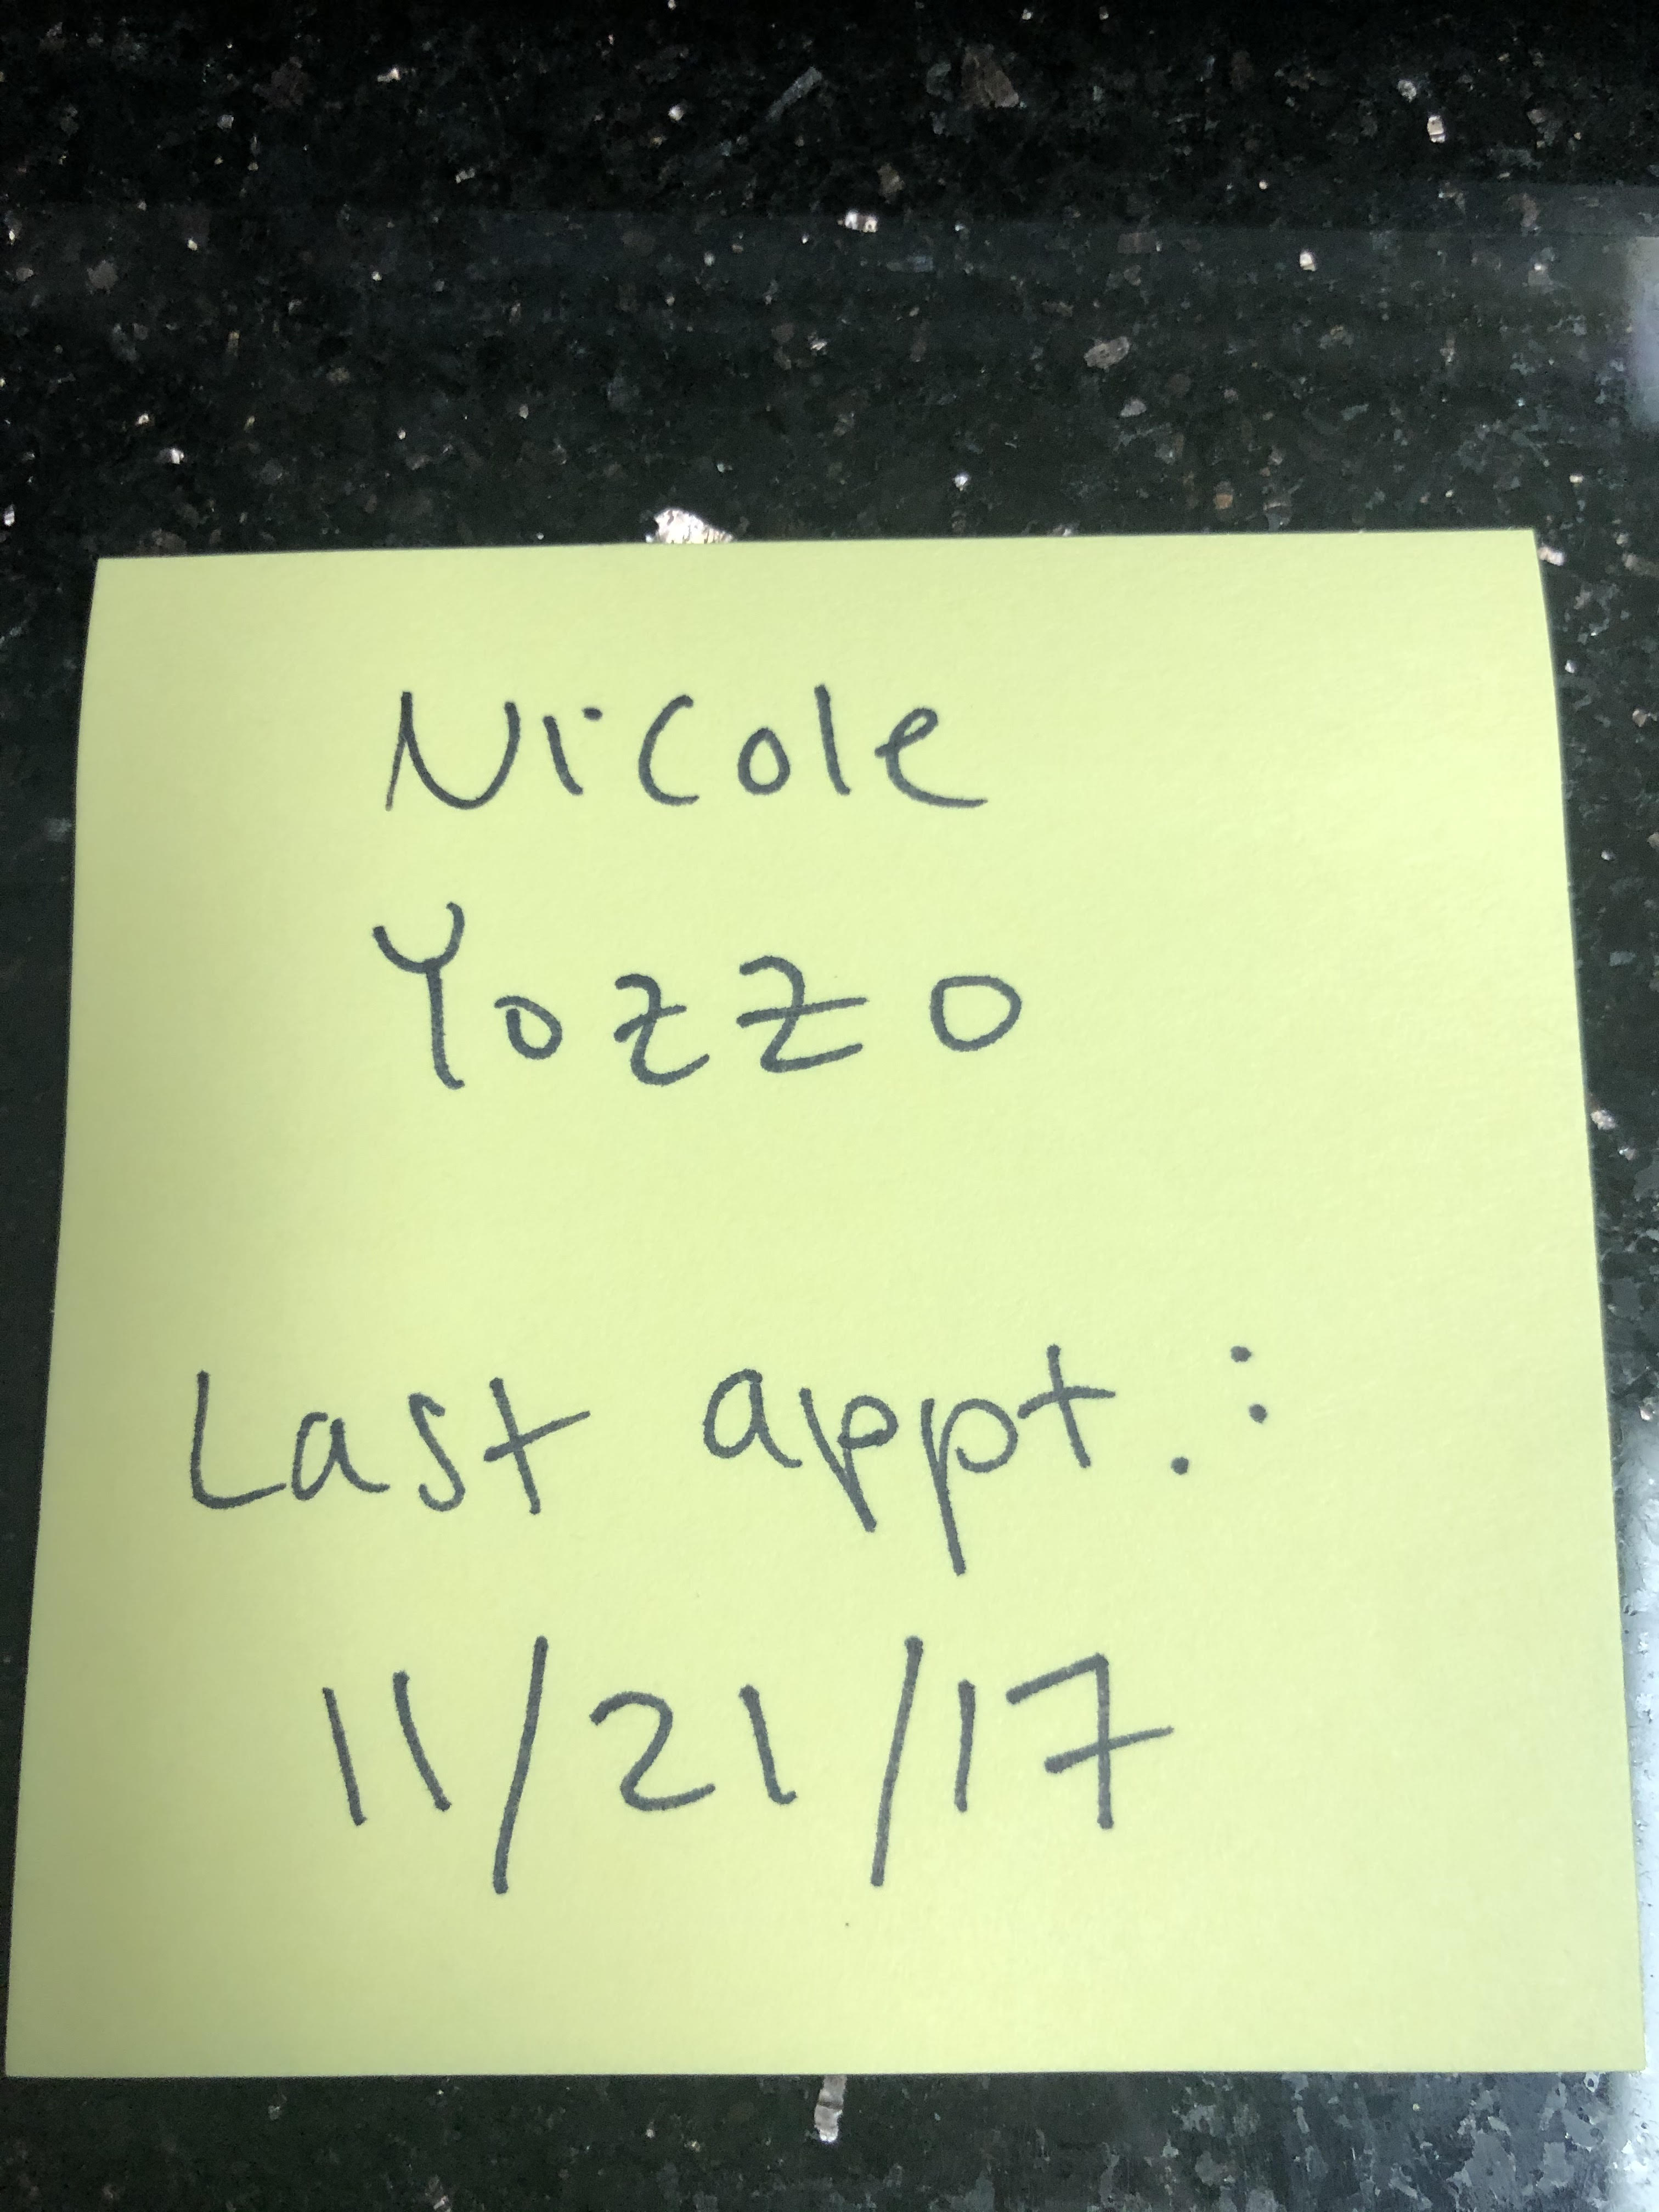 Nicole
Yozzo
Last appt.:
11/21/17